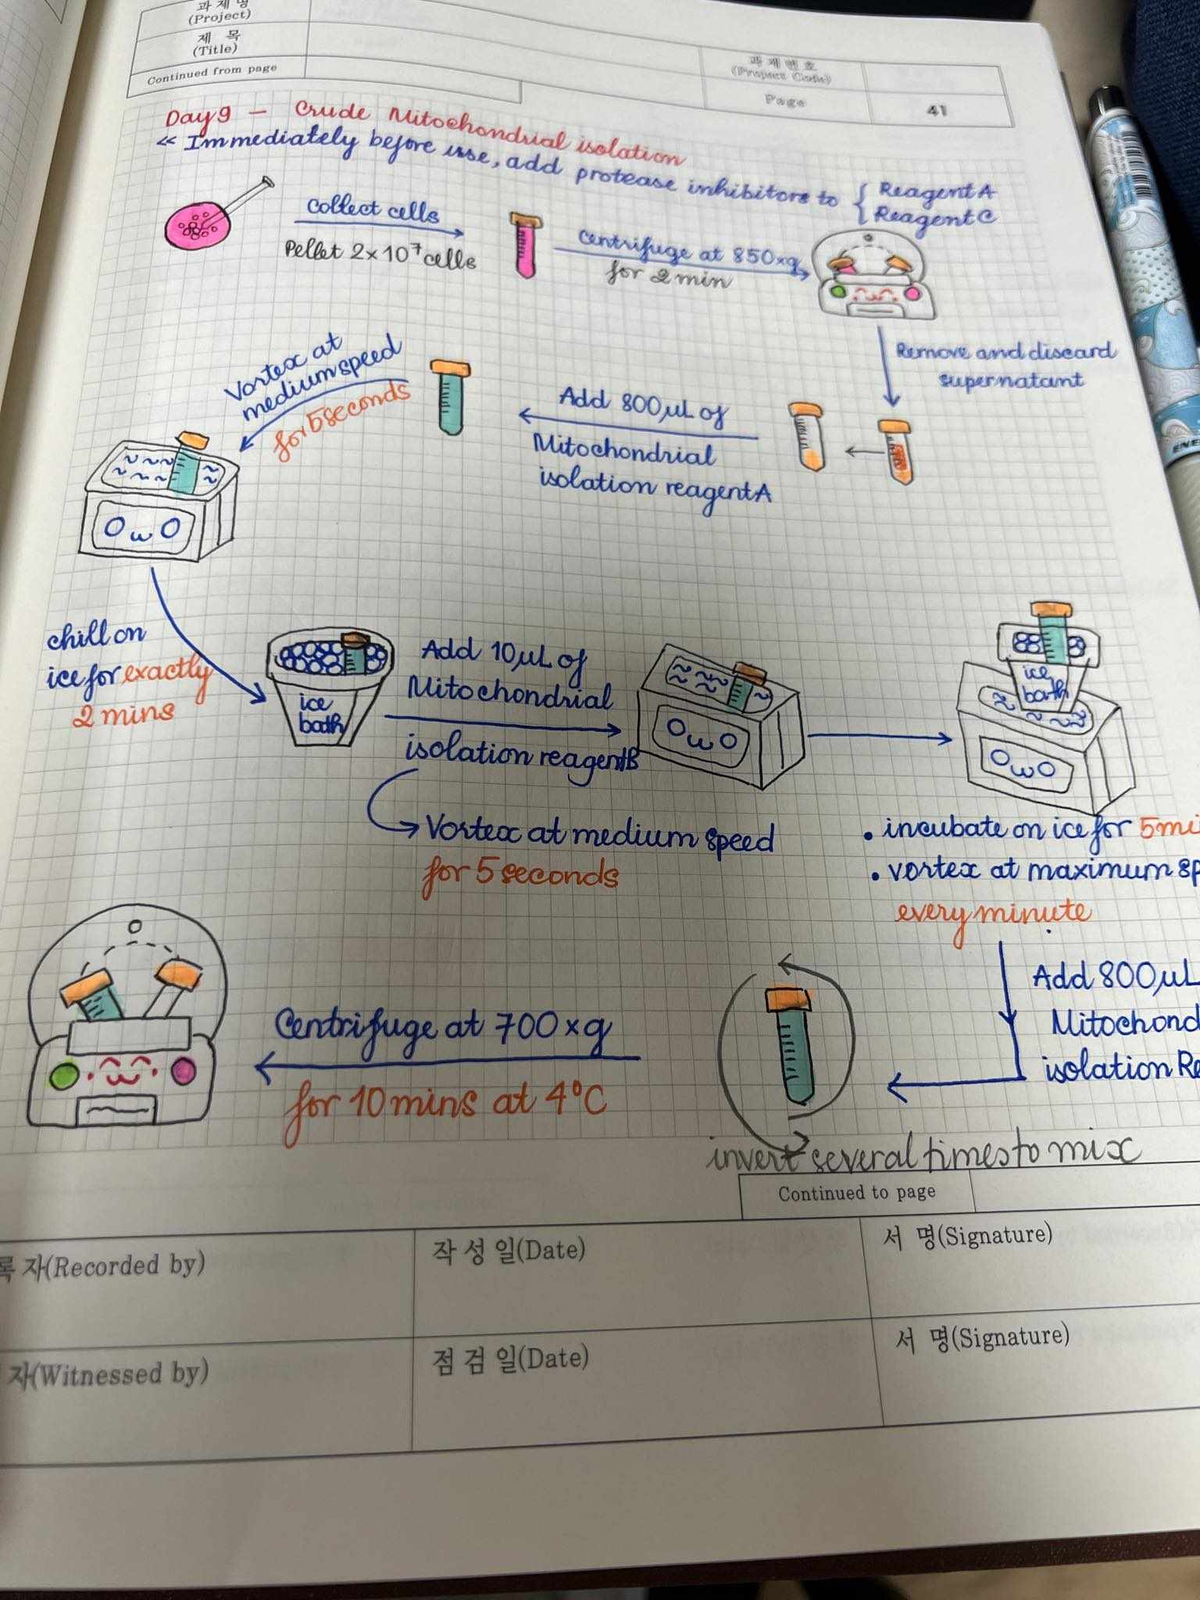 과 제 명
(Project)
제 목
(Title)
Continued from page
과 제 번 호
(Project Code)
Page
41
Day 9 — Crude Mitochondrial isolation
« Immediately before use, add protease inhibitors to { Reagent A
{ Reagent C
Collect cells
Pellet 2×10⁷ cells
Centrifuge at 850×g
for 2 min
Remove and discard
supernatant
Add 800 µL of
Mitochondrial
isolation reagent A
Vortex at
medium speed
for 5 seconds
OωO
chill on
ice for exactly
2 mins
ice
bath
Add 10 µL of
Mitochondrial
isolation reagent B
Vortex at medium speed
for 5 seconds
OωO
ice
bath
OωO
• incubate on ice for 5
• vortex at maximum
every minute
Add 800 µL
isolation
invert several times to mix
Centrifuge at 700×g
for 10 mins at 4°C
Continued to page
록 자(Recorded by)
작 성 일(Date)
서 명(Signature)
자(Witnessed by)
점 검 일(Date)
서 명(Signature)